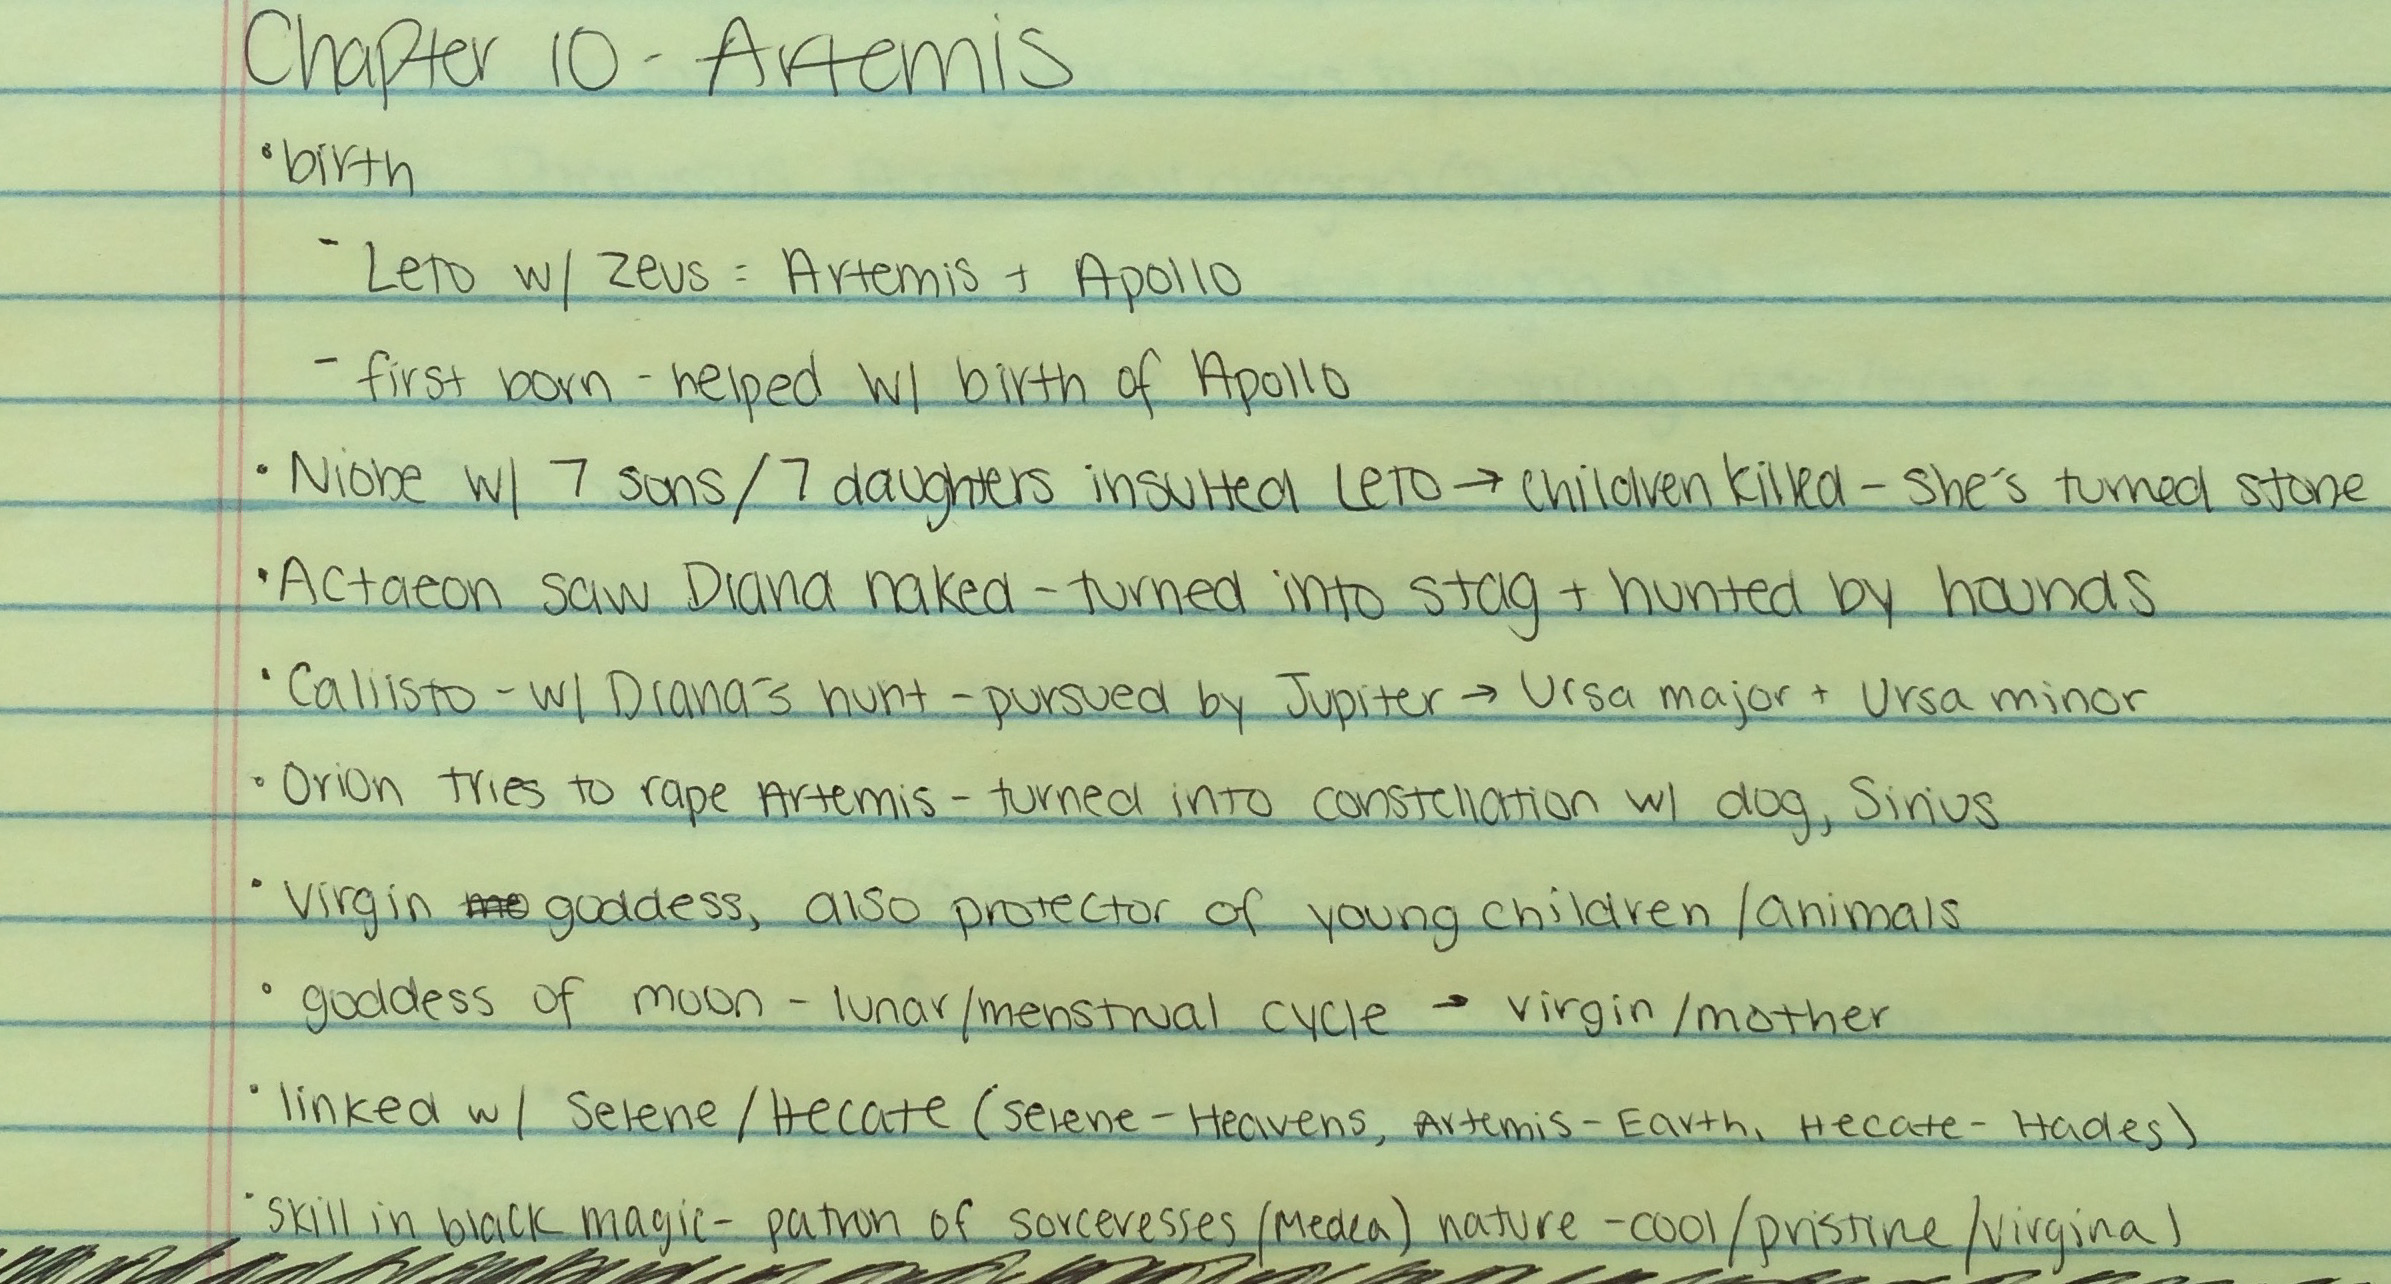 Chapter 10 - Artemis
• birth
- Leto w/ Zeus = Artemis + Apollo
- first born - helped w/ birth of Apollo
• Niobe w/ 7 sons/7 daughters insulted Leto → children killed - she's turned stone
• Actaeon saw Diana naked - turned into stag + hunted by hounds
• Callisto - w/ Diana's hunt - pursued by Jupiter → Ursa major + Ursa minor
• Orion tries to rape Artemis - turned into constellation w/ dog, Sirius
• Virgin goddess, also protector of young children/animals
• goddess of moon - lunar/menstrual cycle - virgin/mother
• linked w/ Selene/Hecate (Selene - Heavens, Artemis - Earth, Hecate - Hades)
• skill in black magic - patron of sorceresses (Medea) nature - cool/pristine/virginal